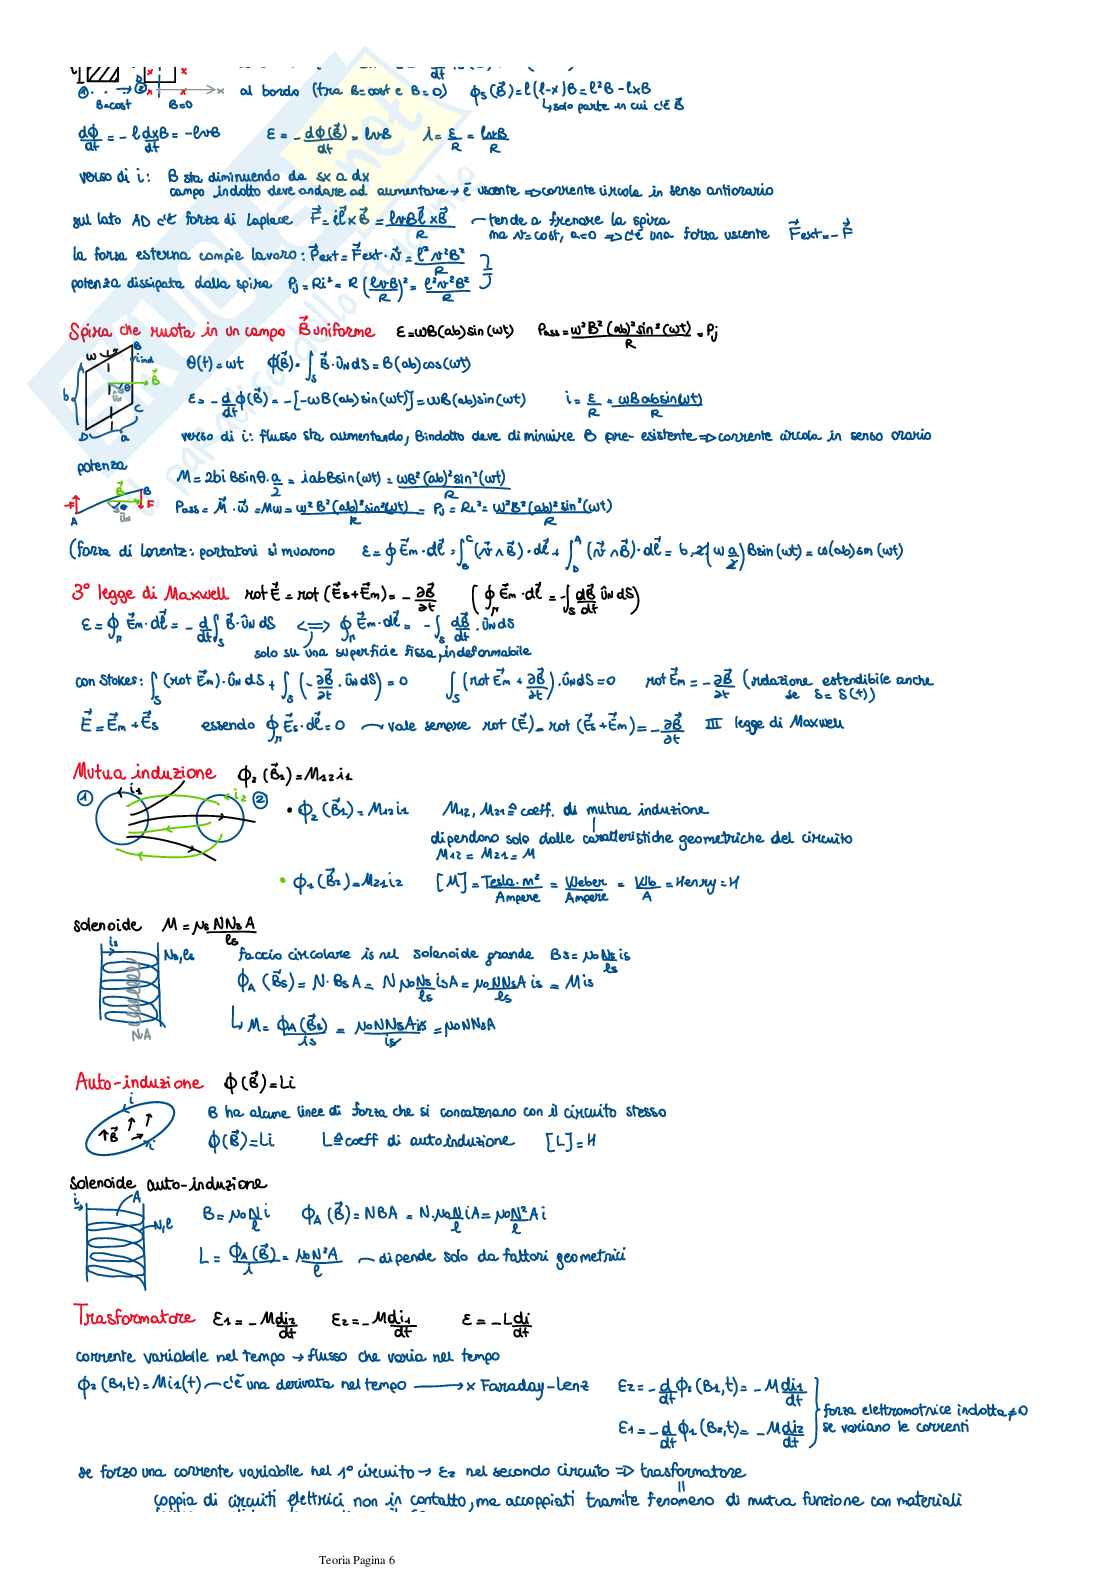 B=cost B=0 x al bordo (tra B=cost e B=0) ϕs(B⃗)=l(l-x)B=l²B-lxB
↳solo parte in cui c'è B⃗
dϕ/dt = -l dx/dt B = -lvB ε = -dϕ(B⃗)/dt = lvB i = ε/R = lvB/R
verso di i: B sta diminuendo da sx a dx
campo indotto deve andare ad aumentare → è uscente ⇒ corrente circola in senso antiorario
sul lato AD c'è forza di Laplace F⃗ = il⃗×B⃗ = lvBl⃗×B⃗/R — tende a frenare la spira
ma v=cost, a=0 ⇒ c'è una forza uscente F⃗ext=-F⃗
la forza esterna compie lavoro: P⃗ext = F⃗ext·v⃗ = l²v²B²/R
potenza dissipata dalla spira Pj = Ri² = R(lvB/R)² = l²v²B²/R
Spira che ruota in un campo B⃗ uniforme ε=ωB(ab)sin(ωt) Pass = ω²B²(ab)²sin²(ωt)/R = Pj
θ(t) = ωt ϕ(B⃗) = ∫s B⃗·ûN dS = B(ab)cos(ωt)
ε = -d/dt ϕ(B⃗) = -[-ωB(ab)sin(ωt)] = ωB(ab)sin(ωt) i = ε/R = ωBabsin(ωt)/R
verso di i: flusso sta aumentando, Bindotto deve diminuire B pre-esistente ⇒ corrente circola in senso orario
potenza
M = 2biBsinθ·a/2 = iabBsin(ωt) = ωB²(ab)²sin²(ωt)/R
Pass = M⃗·ω⃗ = Mω = ω²B²(ab)²sin²(ωt)/R = Pj = Ri² = ω²B²(ab)²sin²(ωt)/R
(forza di Lorentz: portatori si muovono ε = ∮E⃗m·dl⃗ = ∫(v⃗∧B⃗)·dl⃗ + ∫(v⃗∧B⃗)·dl⃗ = b·2(ω a/2)Bsin(ωt) = ω(ab)sin(ωt)
3° legge di Maxwell rot E⃗ = rot(E⃗s+E⃗m) = -∂B⃗/∂t (∮Γ E⃗m·dl⃗ = -∫s dB⃗/dt ûN dS)
ε = ∮Γ E⃗m·dl⃗ = -d/dt ∫s B⃗·ûN dS ⟺ ∮Γ E⃗m·dl⃗ = -∫s dB⃗/dt·ûN dS
solo su una superficie fissa, indeformabile
con Stokes: ∫s (rot E⃗m)·ûN dS + ∫s (-∂B⃗/∂t·ûN dS) = 0 ∫s (rot E⃗m + ∂B⃗/∂t)·ûN dS = 0 rot E⃗m = -∂B⃗/∂t (relazione estendibile anche
se S = S(t))
E⃗ = E⃗m + E⃗s essendo ∮Γ E⃗s·dl⃗ = 0 — vale sempre rot(E⃗) = rot(E⃗s+E⃗m) = -∂B⃗/∂t III legge di Maxwell
Mutua induzione ϕ2(B⃗1) = M12i1
① i1 i2 ② • ϕ2(B⃗1) = M12i1 M12, M21 ≙ coeff. di mutua induzione
dipendono solo dalle caratteristiche geometriche del circuito
M12 = M21 = M
• ϕ1(B⃗2) = M21i2 [M] = Tesla·m²/Ampere = Weber/Ampere = Wb/A = Henry = H
solenoide M = μs NNsA/ls
is Ns, ls faccio circolare is nel solenoide grande Bs = μ0 Ns/ls is
ϕA(B⃗s) = N·BsA = N μ0 Ns/ls isA = μ0NNsA/ls is = Mis
N,A ↳ M = ϕA(B⃗s)/is = μ0NNsAis/is = μ0NNsA
Auto-induzione ϕ(B⃗) = Li
i B⃗ B ha alcune linee di forza che si concatenano con il circuito stesso
ϕ(B⃗) = Li L ≙ coeff di autoinduzione [L] = H
solenoide auto-induzione
i A N,l B = μ0 N/l i ϕA(B⃗) = NBA = N·μ0 N/l iA = μ0 N²/l Ai
L = ϕA(B⃗)/i = μ0N²A/l — dipende solo da fattori geometrici
Trasformatore ε1 = -M di2/dt ε2 = -M di1/dt ε = -L di/dt
corrente variabile nel tempo → flusso che varia nel tempo
ϕ2(B1,t) = Mi1(t) — c'è una derivata nel tempo → x Faraday-Lenz ε2 = -d/dt ϕ2(B1,t) = -M di1/dt
forza elettromotrice indotta ≠0
ε1 = -d/dt ϕ1(B2,t) = -M di2/dt se variano le correnti
se forzo una corrente variabile nel 1° circuito → ε2 nel secondo circuito ⇒ trasformatore
coppia di circuiti elettrici non in contatto, ma accoppiati tramite fenomeno di mutua funzione con materiali
Teoria Pagina 6